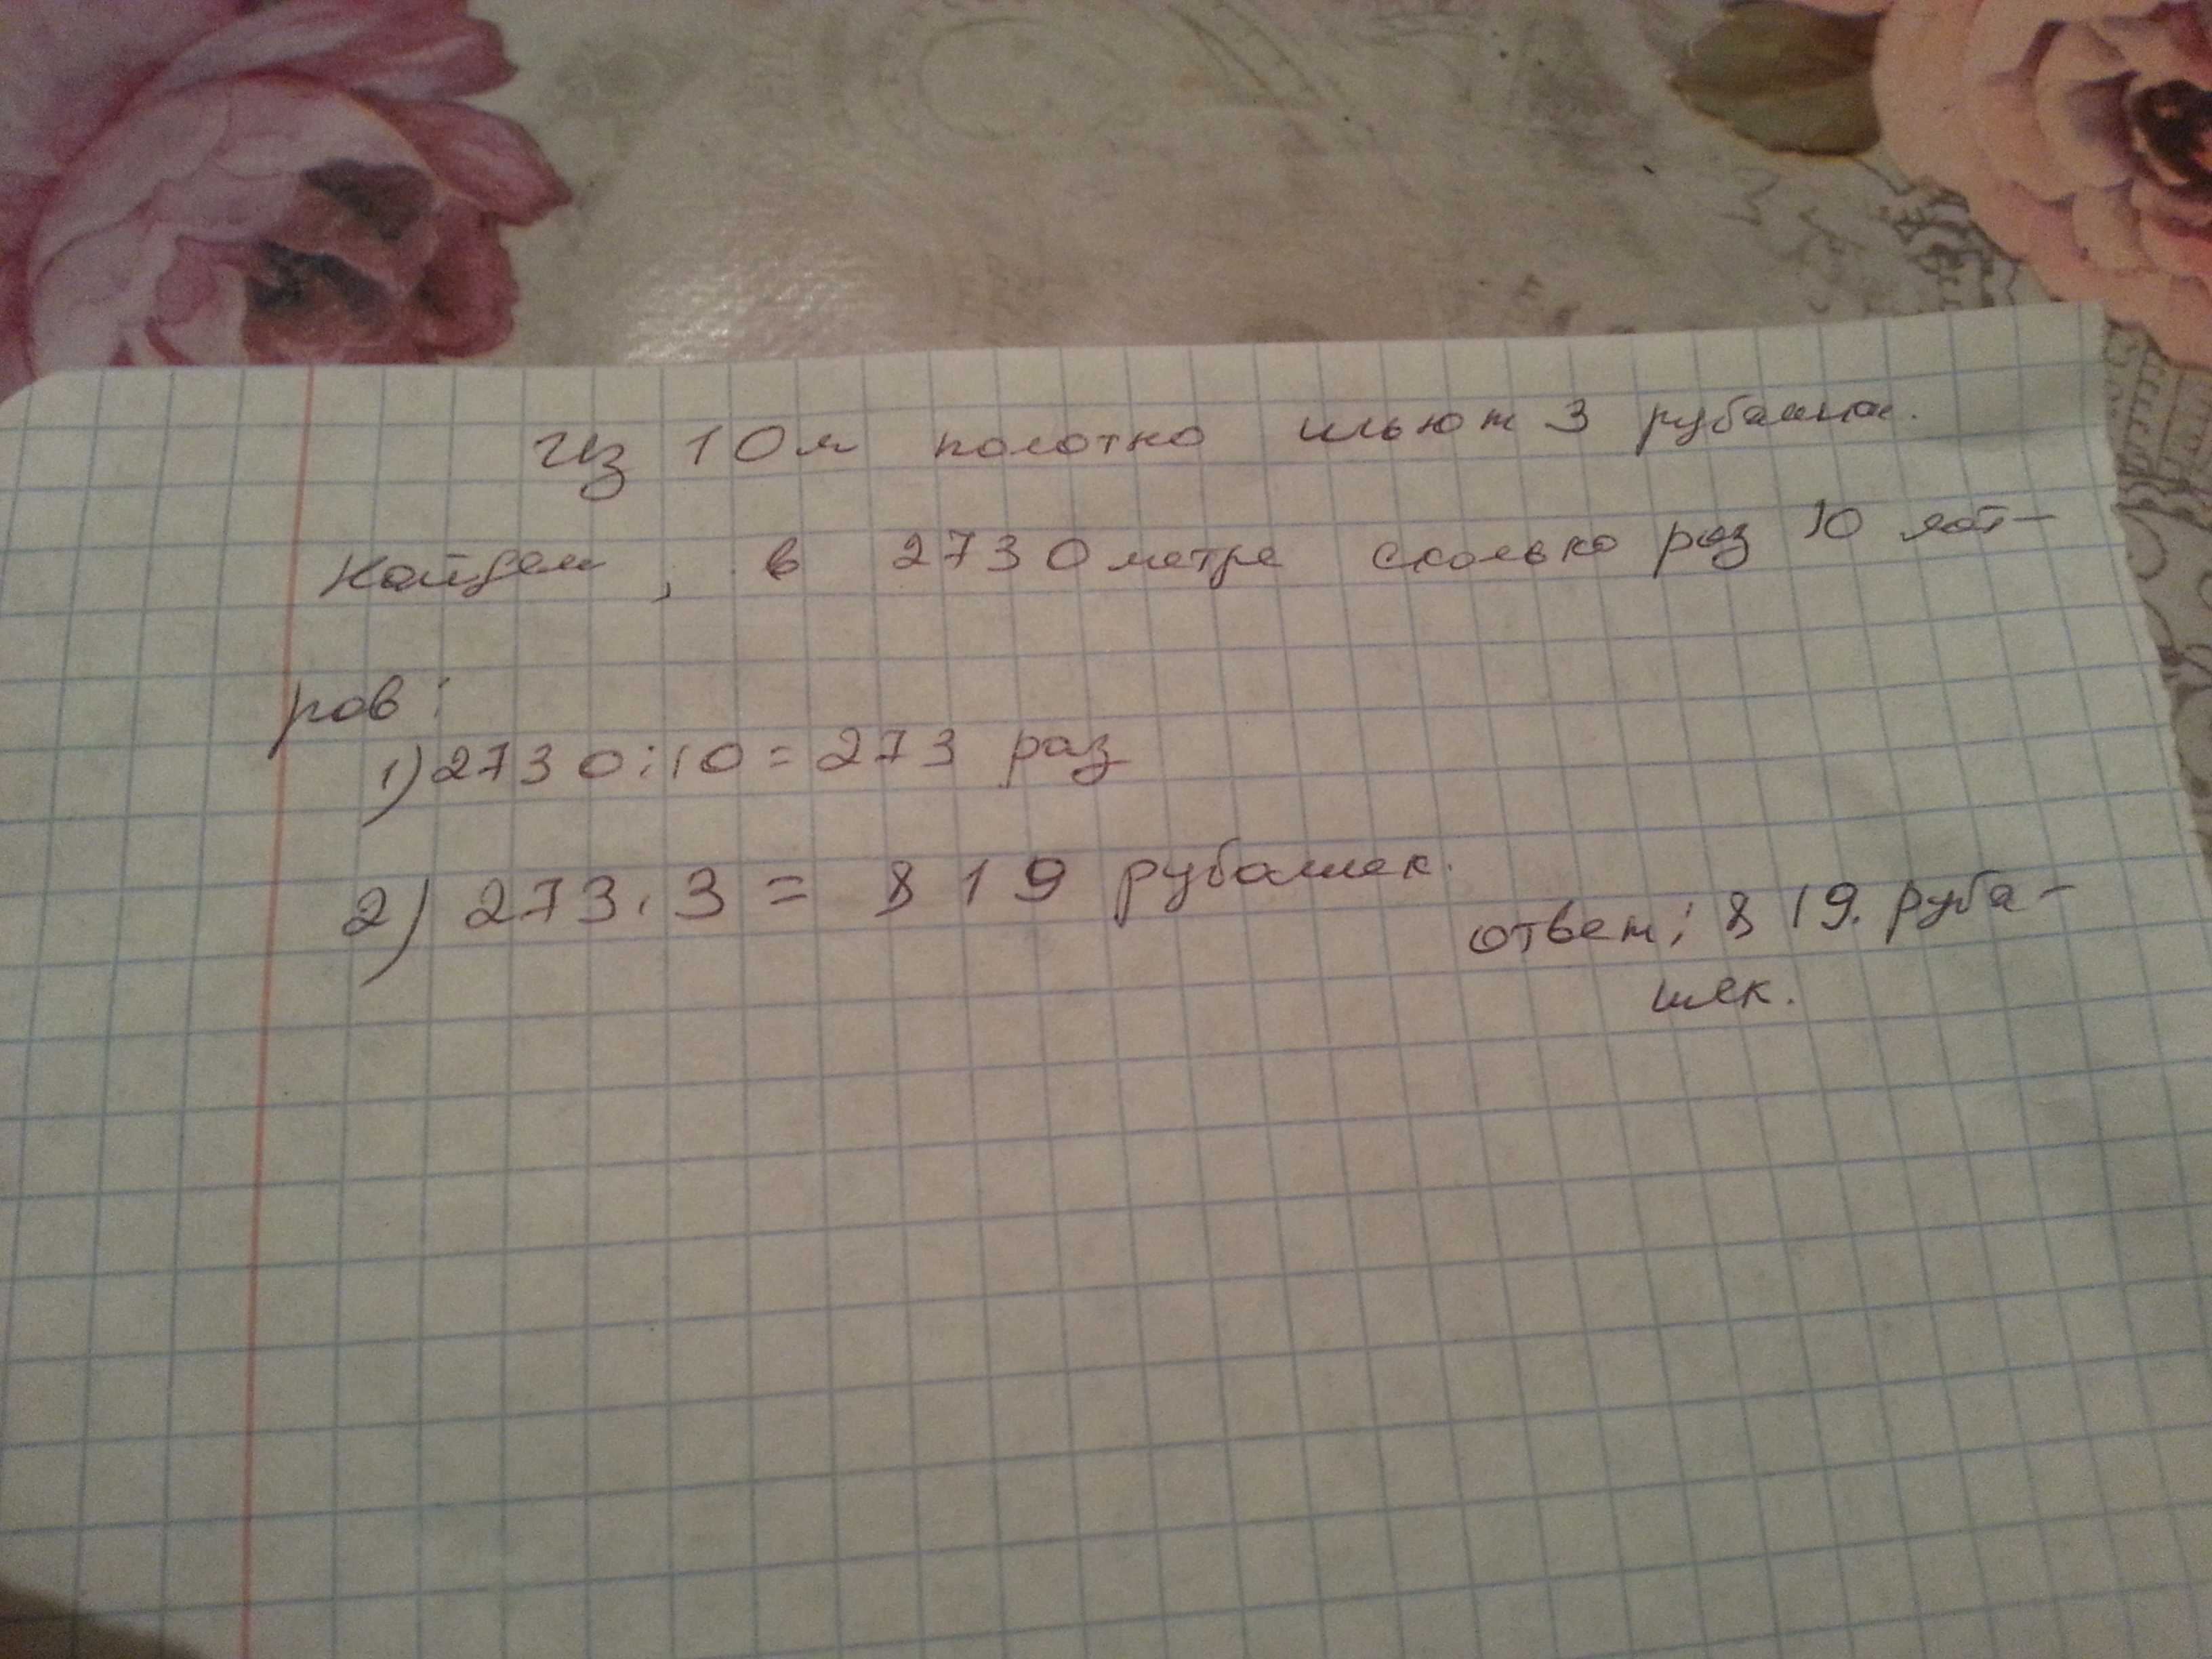 Из 10м полотно шьют 3 рубашки.
Найдем, в 2730 метре сколько раз 10 мет-
ров:
1) 2730:10=273 раз
2) 273.3 = 819 рубашек.
ответ: 819. руба-
шек.